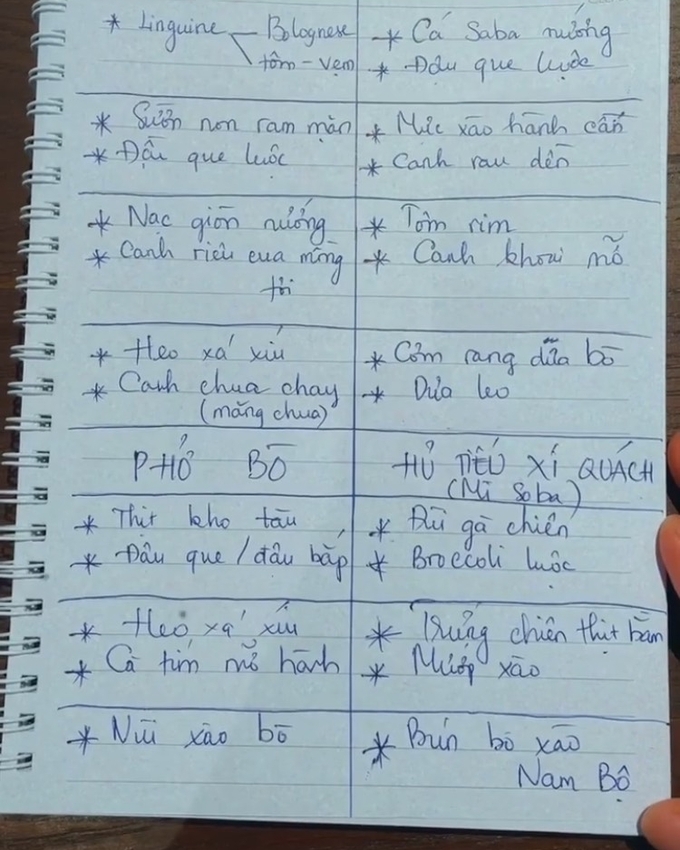 * Linguine Bolognese
tôm - vẹm
* Cá Saba nướng
* Đậu que luộc
* Sườn non ram mặn
* Đậu que luộc
* Mực xào hành cần
* Canh rau dền
* Nạc giòn nướng
* Canh riêu cua mồng
tơi
* Tôm rim
* Canh khoai mỡ
* Heo xá xíu
* Canh chua chay
(măng chua)
* Cơm rang dưa bò
* Dưa leo
PHỞ BÒ
HỦ TIẾU XÍ QUÁCH
(Mì Soba)
* Thịt kho tàu
* Đậu que / đậu bắp
* Đùi gà chiên
* Broccoli luộc
* Heo xá xíu
* Cà tím mỡ hành
* Trứng chiên thịt bằm
* Mướp xào
* Nui xào bò
* Bún bò xào
Nam Bộ